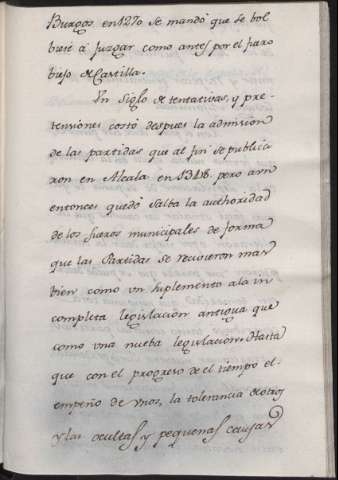 Burgos, en 1270 se mandó que se bol
biese á Juzgar como antes por el fuero
biejo de Castilla.
Un Siglo de tentativas, y pre-
tensiones costó despues la admision
de las partidas que al fin se publica
ron en Alcala en 1348. pero aun
entonces quedó salba la authoridad
de los fueros municipales de forma
que las Partidas se recivieron mas
bien como un suplemento a la in
completa legislacion antigua que
como una nueba legislacion. Hasta
que con el progreso de el tiempo el
empeño de unos, la tolerancia de otros
y las ocultas y pequeñas causas